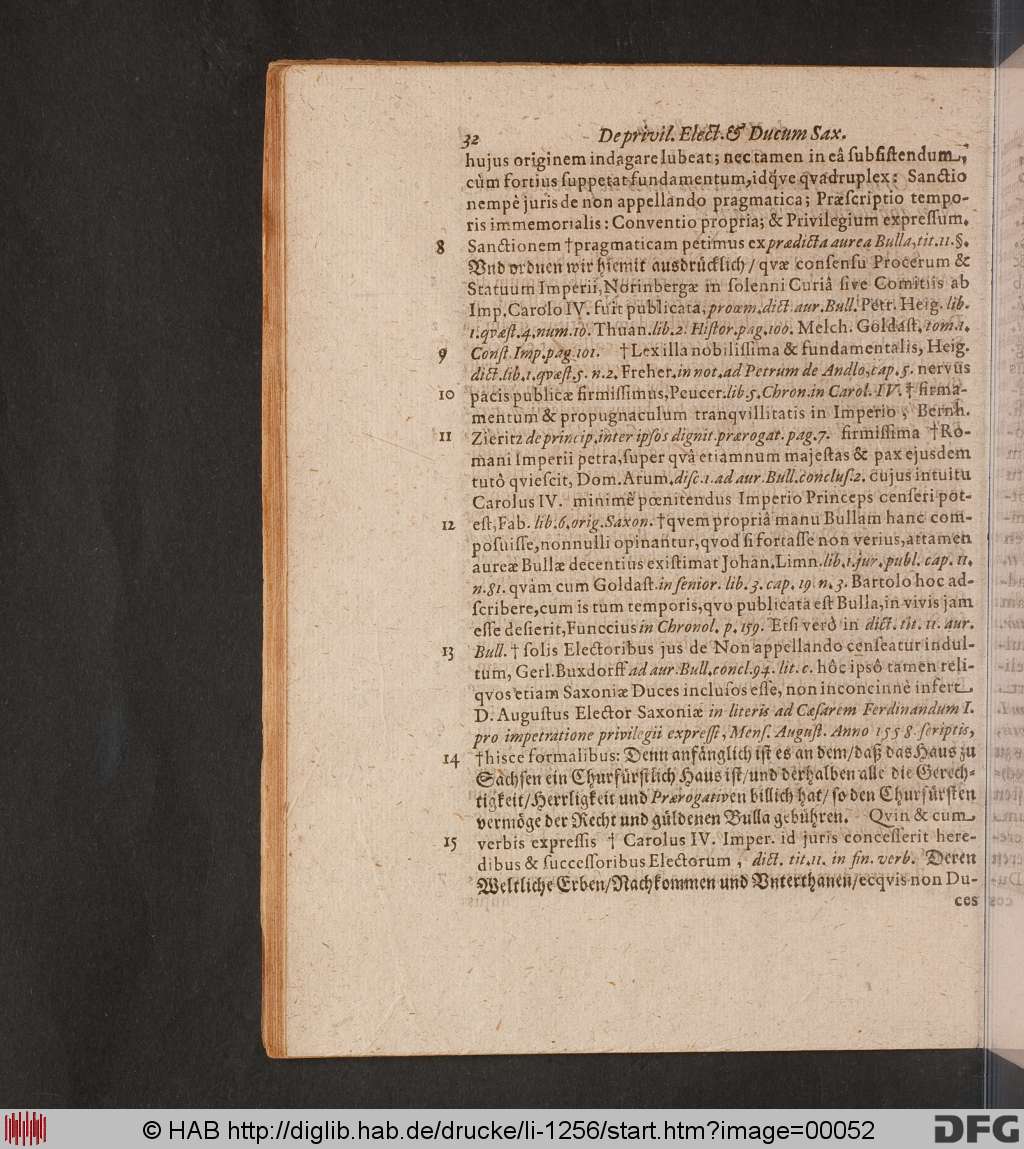 32 De privil. Elect. & Ducum Sax.
hujus originem indagare lubeat; nec tamen in eâ ſubſiſtendum,
cùm fortius ſuppetat fundamentum, idq́ve qvadruplex: Sanctio
nempè juris de non appellando pragmatica; Præſcriptio tempo-
ris immemorialis: Conventio propria; & Privilegium expreſſum.
8 Sanctionem † pragmaticam petimus ex prædicta aurea Bulla, tit. 11. §.
Vnd ordnen wir hiemit ausdrücklich / qvæ conſenſu Procerum &
Statuum Imperii, Norinbergæ in ſolenni Curiâ ſive Comitiis ab
Imp. Carolo IV. fuit publicata, proœm. dict. aur. Bull. Petr. Heig. lib.
1. qvæſt. 4. num. 10. Thuan. lib. 2. Hiſtor. pag. 100. Melch. Goldaſt. tom. 1.
9 Conſt. Imp. pag. 101. † Lex illa nobiliſſima & fundamentalis, Heig.
dict. lib. 1. qvæſt. 5. n. 2. Freher. in not. ad Petrum de Andlo, cap. 5. nervus
10 pacis publicæ firmiſſimus, Peucer. lib. 5. Chron. in Carol. IV. † firma-
mentum & propugnaculum tranqvillitatis in Imperio, Bernh.
11 Zieritz de princip. inter ipſos dignit. prærogat. pag. 7. firmiſſima † Ro-
mani Imperii petra, ſuper qvâ etiamnum majeſtas & pax ejusdem
tutò qvieſcit, Dom. Arum. diſc. 1. ad aur. Bull. concluſ. 2. cujus intuitu
Carolus IV. minimè pœnitendus Imperio Princeps cenſeri pot-
12 eſt, Fab. lib. 6. orig. Saxon. † qvem propriâ manu Bullam hanc com-
poſuiſſe, nonnulli opinantur, qvod ſi fortaſſe non verius, attamen
aureæ Bullæ decentius exiſtimat Johan. Limn. lib. 1. jur. publ. cap. 11.
n. 81. qvàm cum Goldaſt. in ſenior. lib. 3. cap. 19 n. 3. Bartolo hoc ad-
ſcribere, cum is tum temporis, qvo publicata eſt Bulla, in vivis jam
eſſe deſierit, Funccius in Chronol. p. 159. Etſi verò in dict. tit. 11. aur.
13 Bull. † ſolis Electoribus jus de Non appellando cenſeatur indul-
tum, Gerl. Buxdorff ad aur. Bull. concl. 94. lit. c. hôc ipſô tamen reli-
qvos etiam Saxoniæ Duces incluſos eſſe, non inconcinnè infert
D. Auguſtus Elector Saxoniæ in literis ad Cæſarem Ferdinandum I.
pro impetratione privilegii expreſſi, Menſ. Auguſt. Anno 1558. ſcriptis,
14 † hisce formalibus: Denn anfänglich iſt es an dem / daß das Haus zu
Sachſen ein Churfürſtlich Haus iſt / und derhalben alle die Gerech-
tigkeit / Herrligkeit und Prærogativen billich hat / ſo den Churfürſten
vermöge der Recht und güldenen Bulla gebühren. Qvin & cum
15 verbis expreſſis † Carolus IV. Imper. id juris conceſſerit here-
dibus & ſucceſſoribus Electorum, dict. tit. 11. in fin. verb. Deren
Weltliche Erben / Nachkommen und Vnterthanen / ecqvis non Du-
ces
© HAB http://diglib.hab.de/drucke/li-1256/start.htm?image=00052
DFG